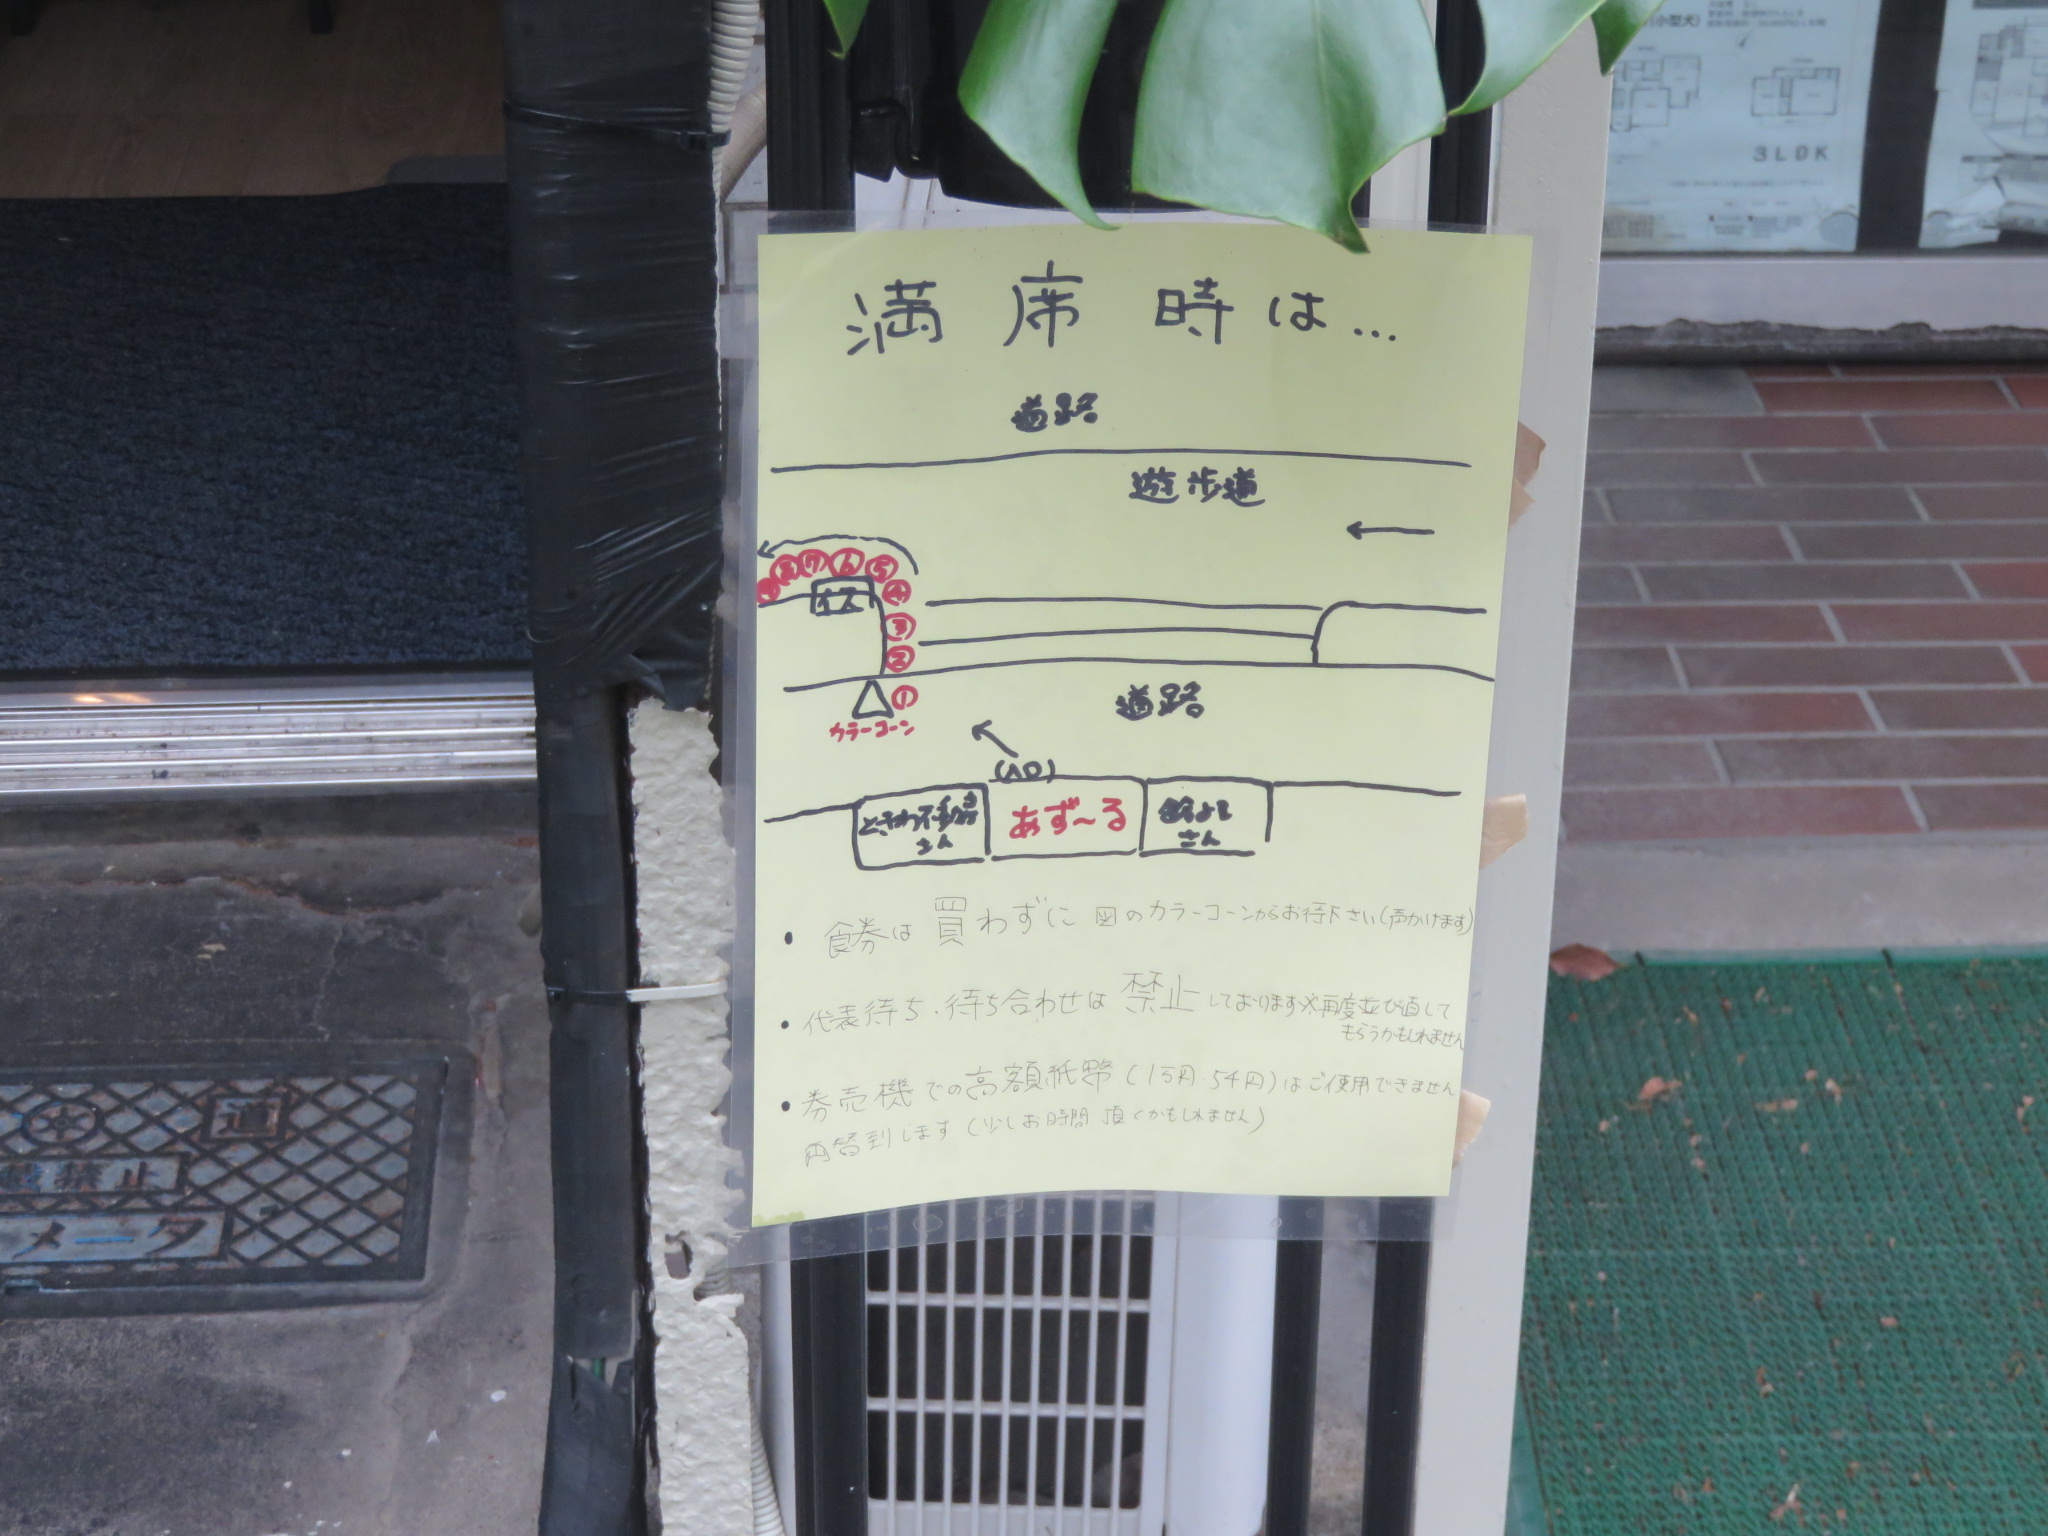 (小型犬)
3LDK
満席時は...
道路
遊歩道
⑧⑦⑥⑤
④
イス
③
②
①
カラーコーン
道路
(入口)
ときわ不動産
さん
あず〜る
さん
• 食券は買わずに図のカラーコーンからお待下さい(声かけます)
• 代表待ち・待ち合わせは禁止しております※再度並び直して
もらうかもしれません
• 券売機での高額紙幣(1万円・5千円)はご使用できません
両替到します(少しお時間頂くかもしれません)
道
禁止
メータ